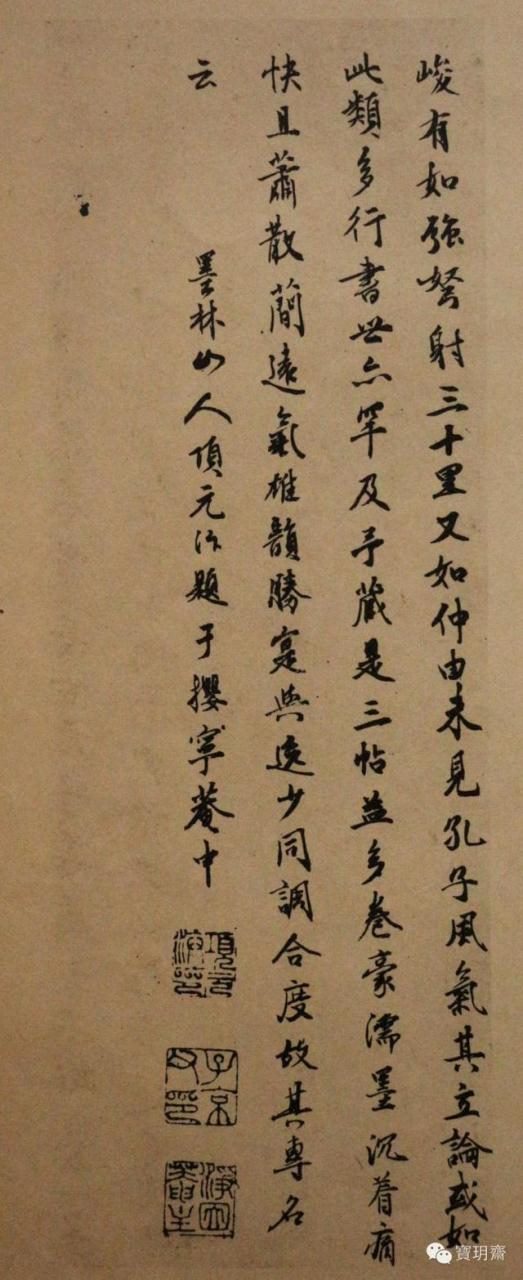 峻有如強弩射三十里又如仲由未見孔子風氣其立論或如
此類多行書世亦罕及予藏是三帖益多卷豪濡墨沉着痛
快且蕭散蕳遠氣雄韻勝寔與逸少同調合度故其專名
云
墨林山人項元汴題于攖寧菴中
項元汴印
子京父印
寶玥齋